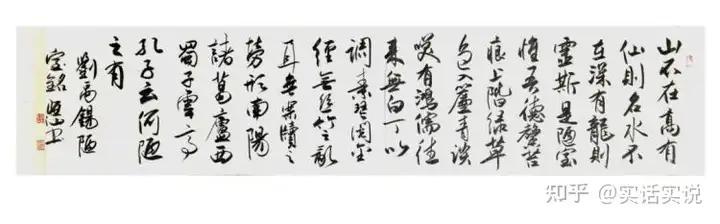 山不在高有
仙則名水不
在深有龍則
靈斯是陋室
惟吾德馨苔
痕上階緑草
色入簾青談
笑有鴻儒往
来無白丁以
調素琴閱金
經無絲竹之亂
耳無案牘之
勞形南陽
諸葛廬西
蜀子雲亭
孔子云何陋
之有
劉禹錫陋
室銘
知乎 @实话实说